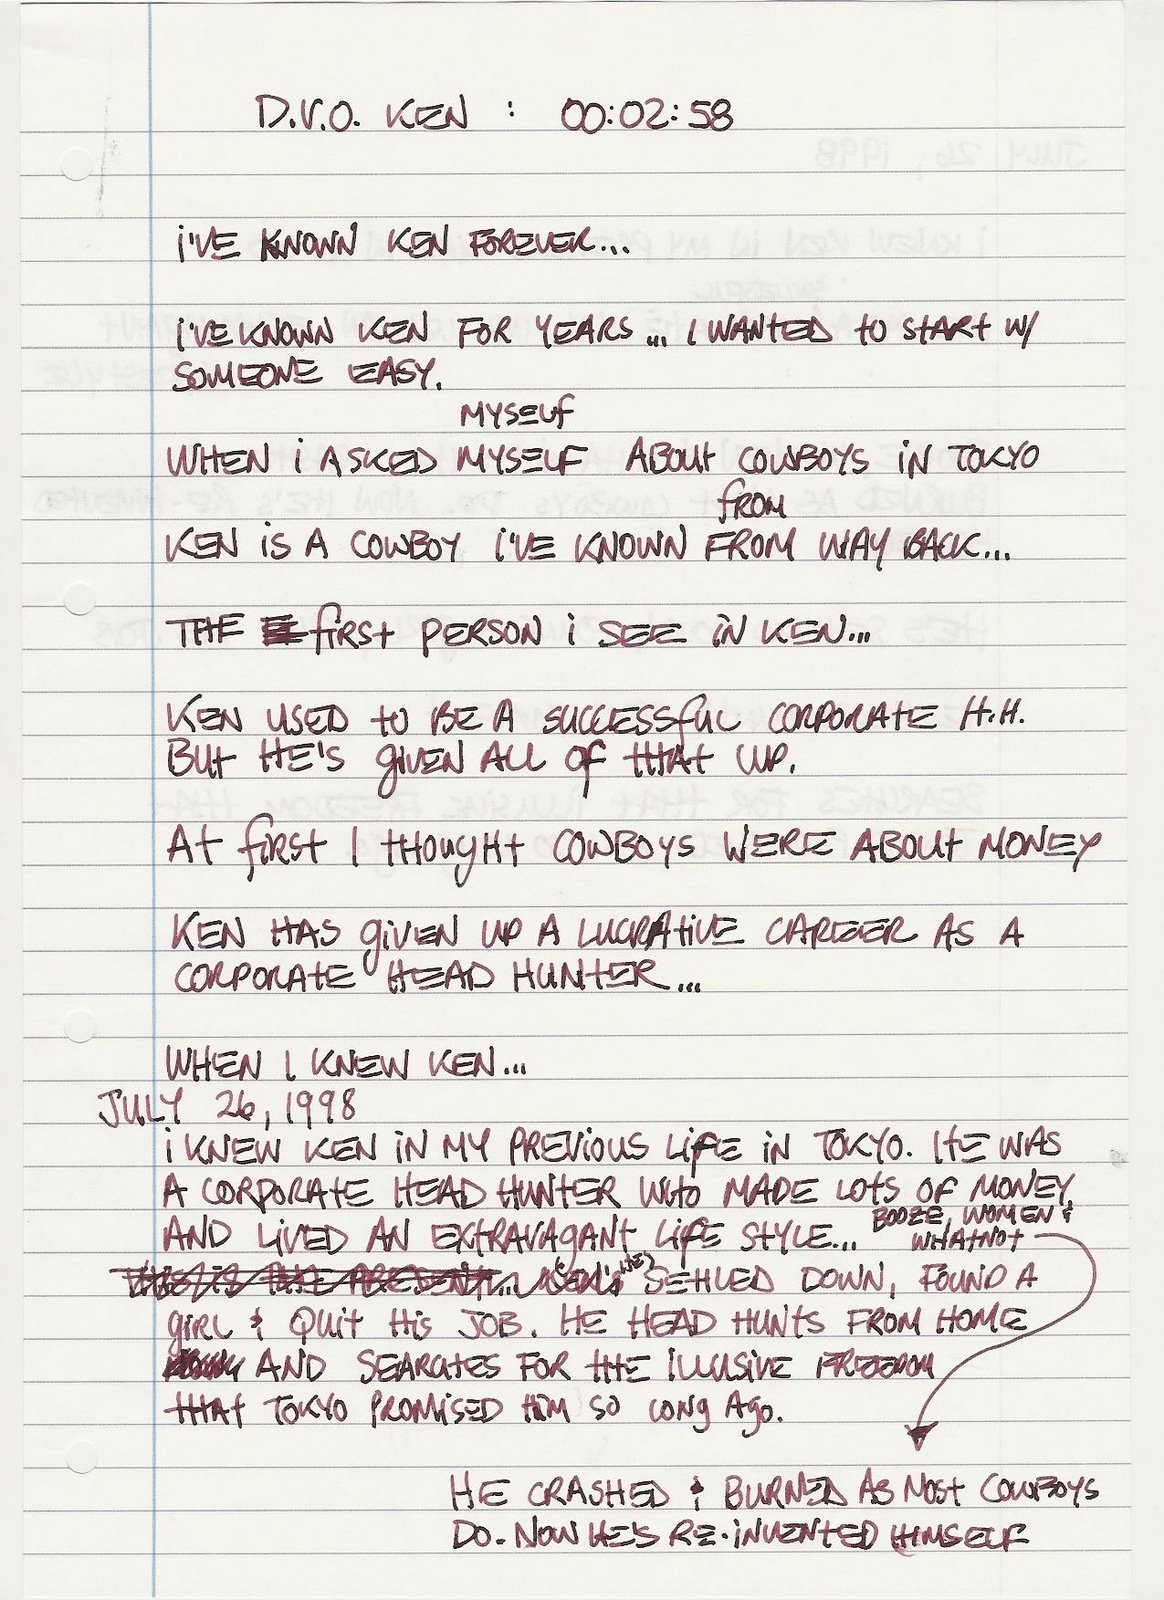 D.V.O. KEN : 00:02:58
i'VE KNOWN KEN FOREVER...
i'VE KNOWN KEN FOR YEARS... I WANTED to START W/
SOMEONE EASY.
MYSELF
WHEN i ASKED MYSELF ABOUT COWBOYS iN TOKYO
FROM
KEN iS A COWBOY i'VE KNOWN FROM WAY BACK...
THE first PERSON i SEE iN KEN...
KEN USED to BE A SUCCESSFUL CORPORATE H.H.
BUt HE'S giVEN ALL Of tHAt UP.
At first I tHOUgHt COWBOYS WERE ABOUt MONEY
KEN HAS giVEN UP A LUCRAtiVE CAREER AS A
CORPORAtE HEAD HUNTER...
WHEN I KNEW KEN...
JULY 26, 1998
i KNEW KEN iN MY PREVIOUS LifE iN TOKYO. HE WAS
A CORPORAtE HEAD HUNTER WHO MADE LOtS OF MONEY
BOOZE, WOMEN &
AND LIVED AN EXTRAVAgANT LifE STYLE... WHAtNOt
THIS IS THE PRESENT... KEN'S (HE) SEttLED DOWN, FOUND A
giRL & QUit HiS JOB. HE HEAD HUNTS FROM HOME
AND SEARCHES FOR tHE ILLUSIVE FREEDOM
tHAt TOKYO PROMISED HiM SO LONg AgO.
HE CRASHED & BURNED AS MOSt COWBOYS
DO. NOW HE'S RE-INVENTED HIMSELF